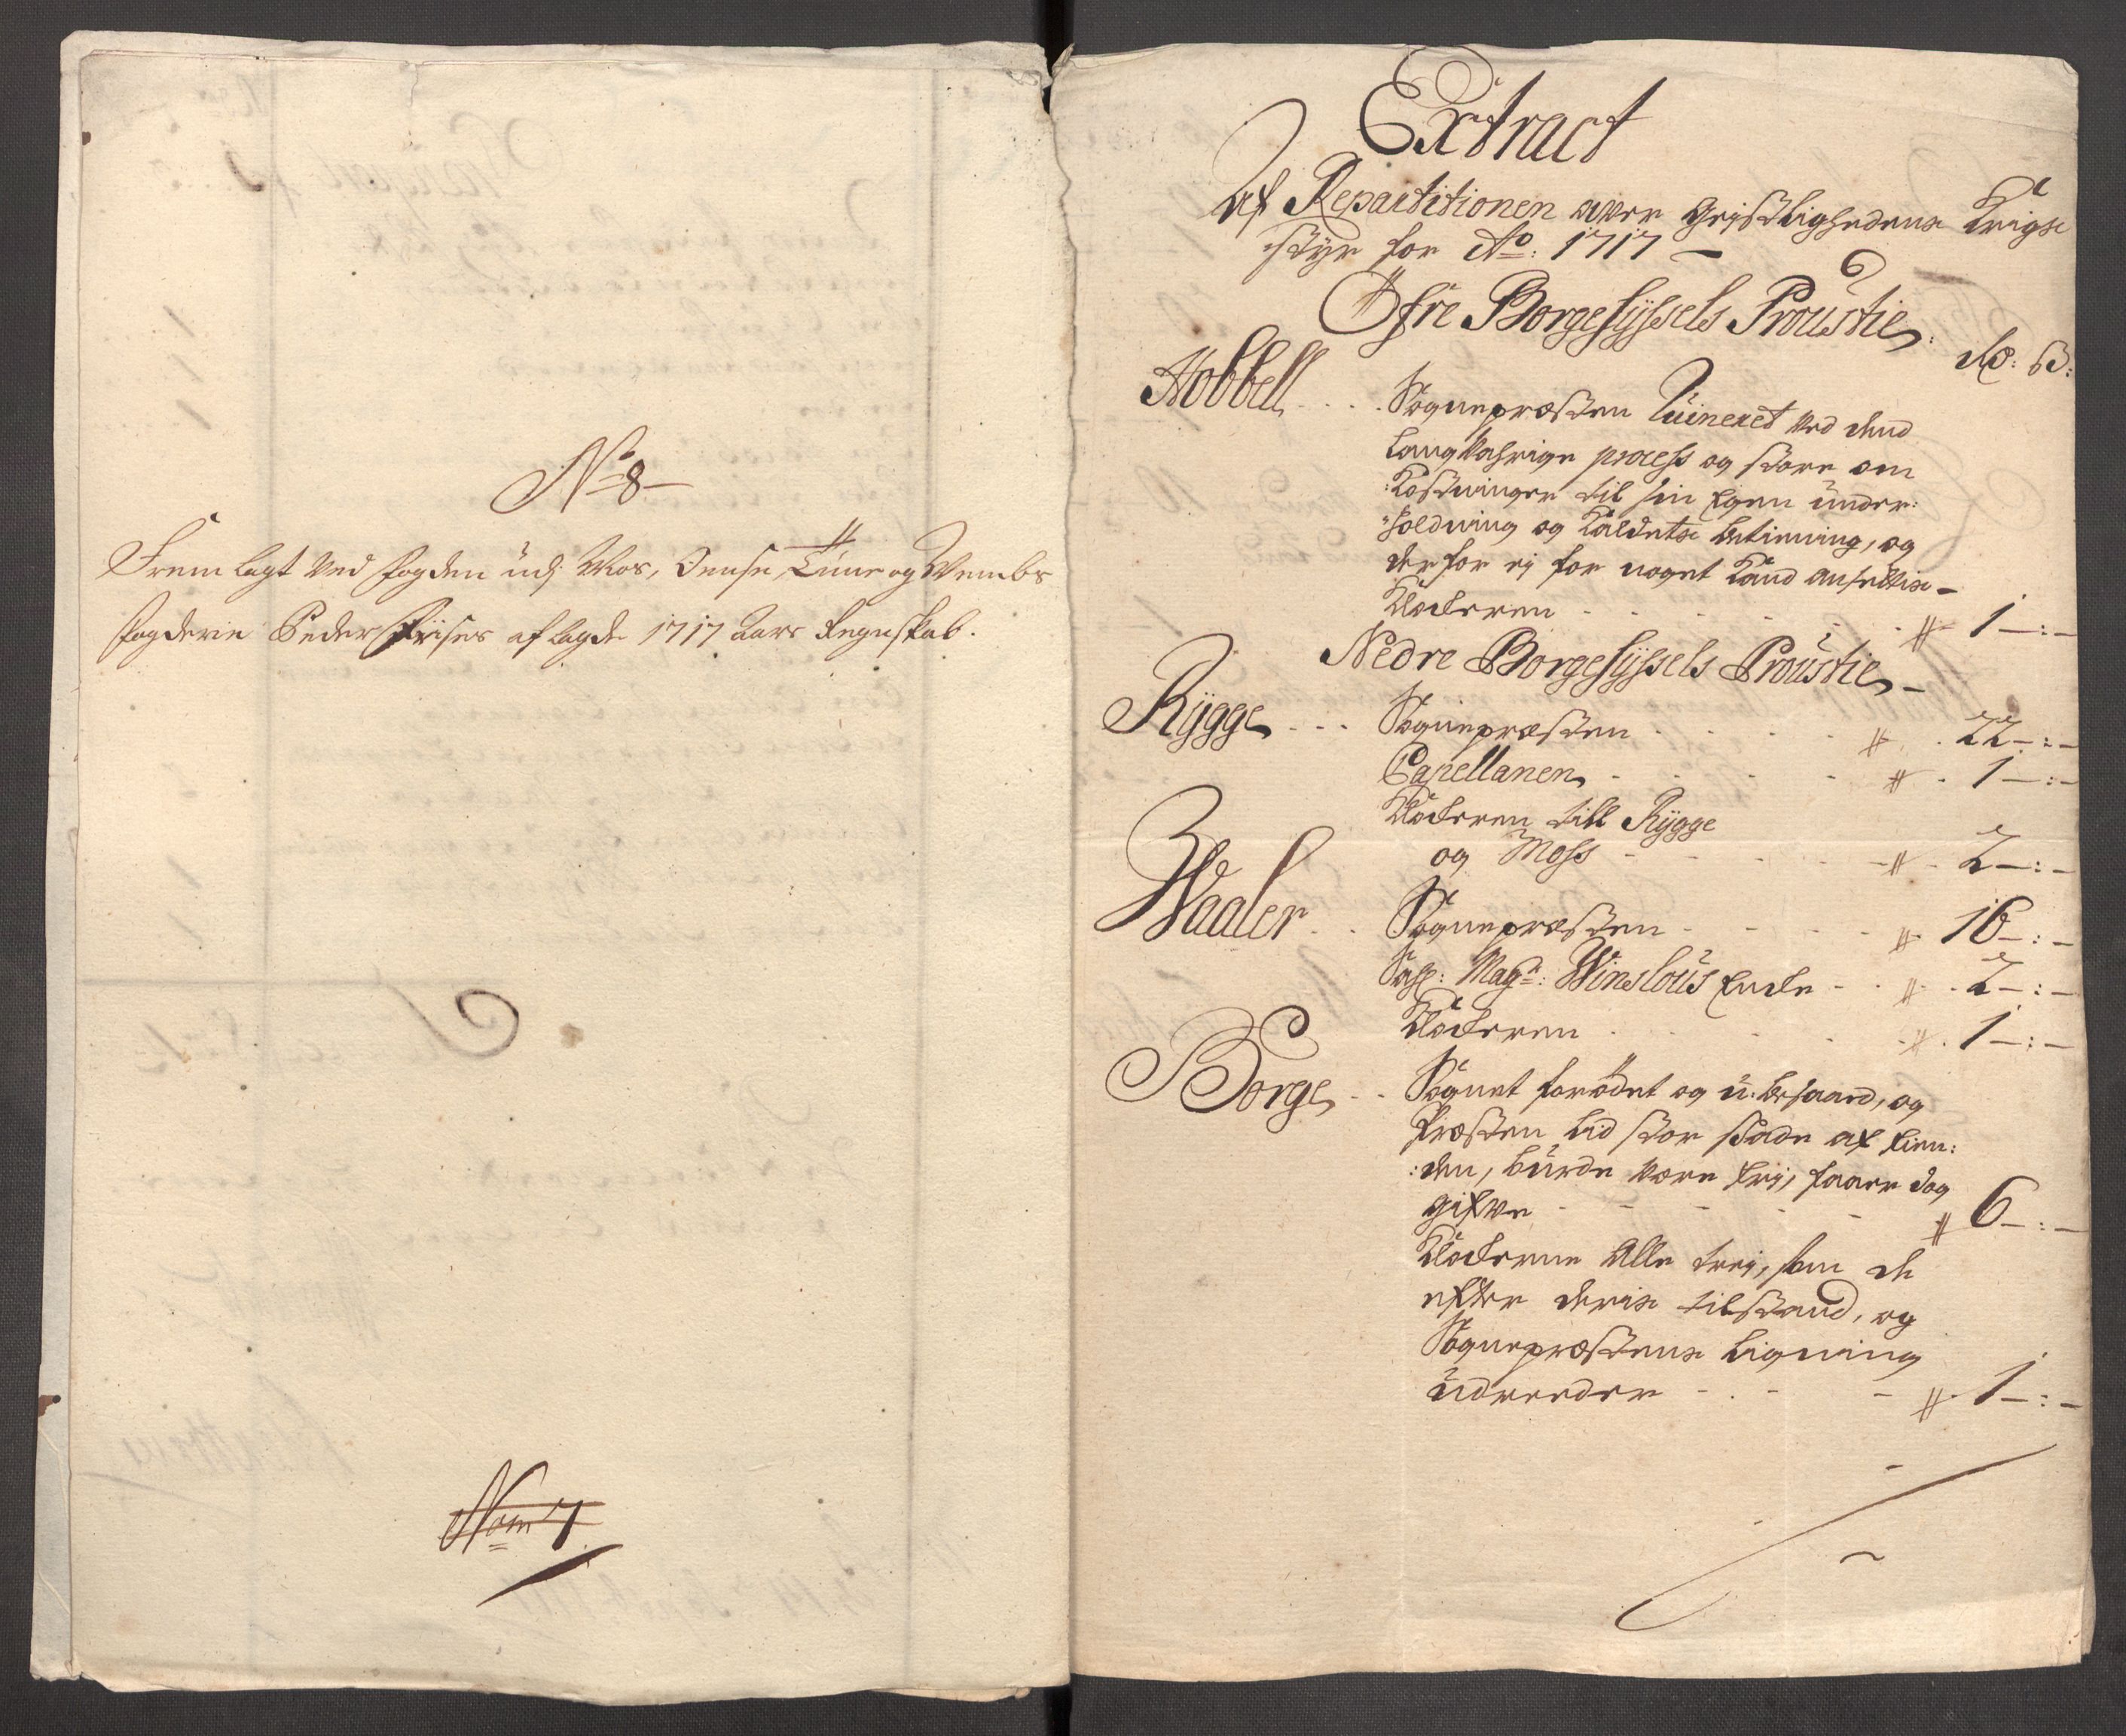 No 8
Fremlagt Ved fogden udj Mos, Onsøe, Tune og Wembs
fogderie Peder Friises aflagde 1717 Aars Regnskab.
Nom 7
Extract
Af Repartitionen over Geistlighedens Krigs
styr for Ao: 1717
Øfre Borgesyssels Proustie
Rdr: ß:
Hobbell . . . Sognepræsten Ruineret ved dend
langvahrige process og store om
:kostninger til sin Egen under:
:holdning og Kaldets betiening, og
derfor ej for noget Kand ansettis
Klockeren - - - 1 - : -
Nedre Borgesyssels Proustie
Rygge . . . Sognepræsten . . . 22 - : -
Capellanen . . . 1 - : -
Klockeren till Rygge
og Moss - - - 2 - : -
Waaler . . Sognepræsten - - - 16 - : -
Sahl: Magr: Winslous Encke - . 2 - : -
Klockeren . . . 1 - : -
Borge . . Sognet forødet og u-besaaed, og
Præsten lid stor skade af fien:
:den, burde være frj, faaer dog
gifve - - - 6 - : -
Klockerne Alle trej, som de
efter deris tilstand, og
Sognepræstens Ligning
udreeder - . - 1 - : -